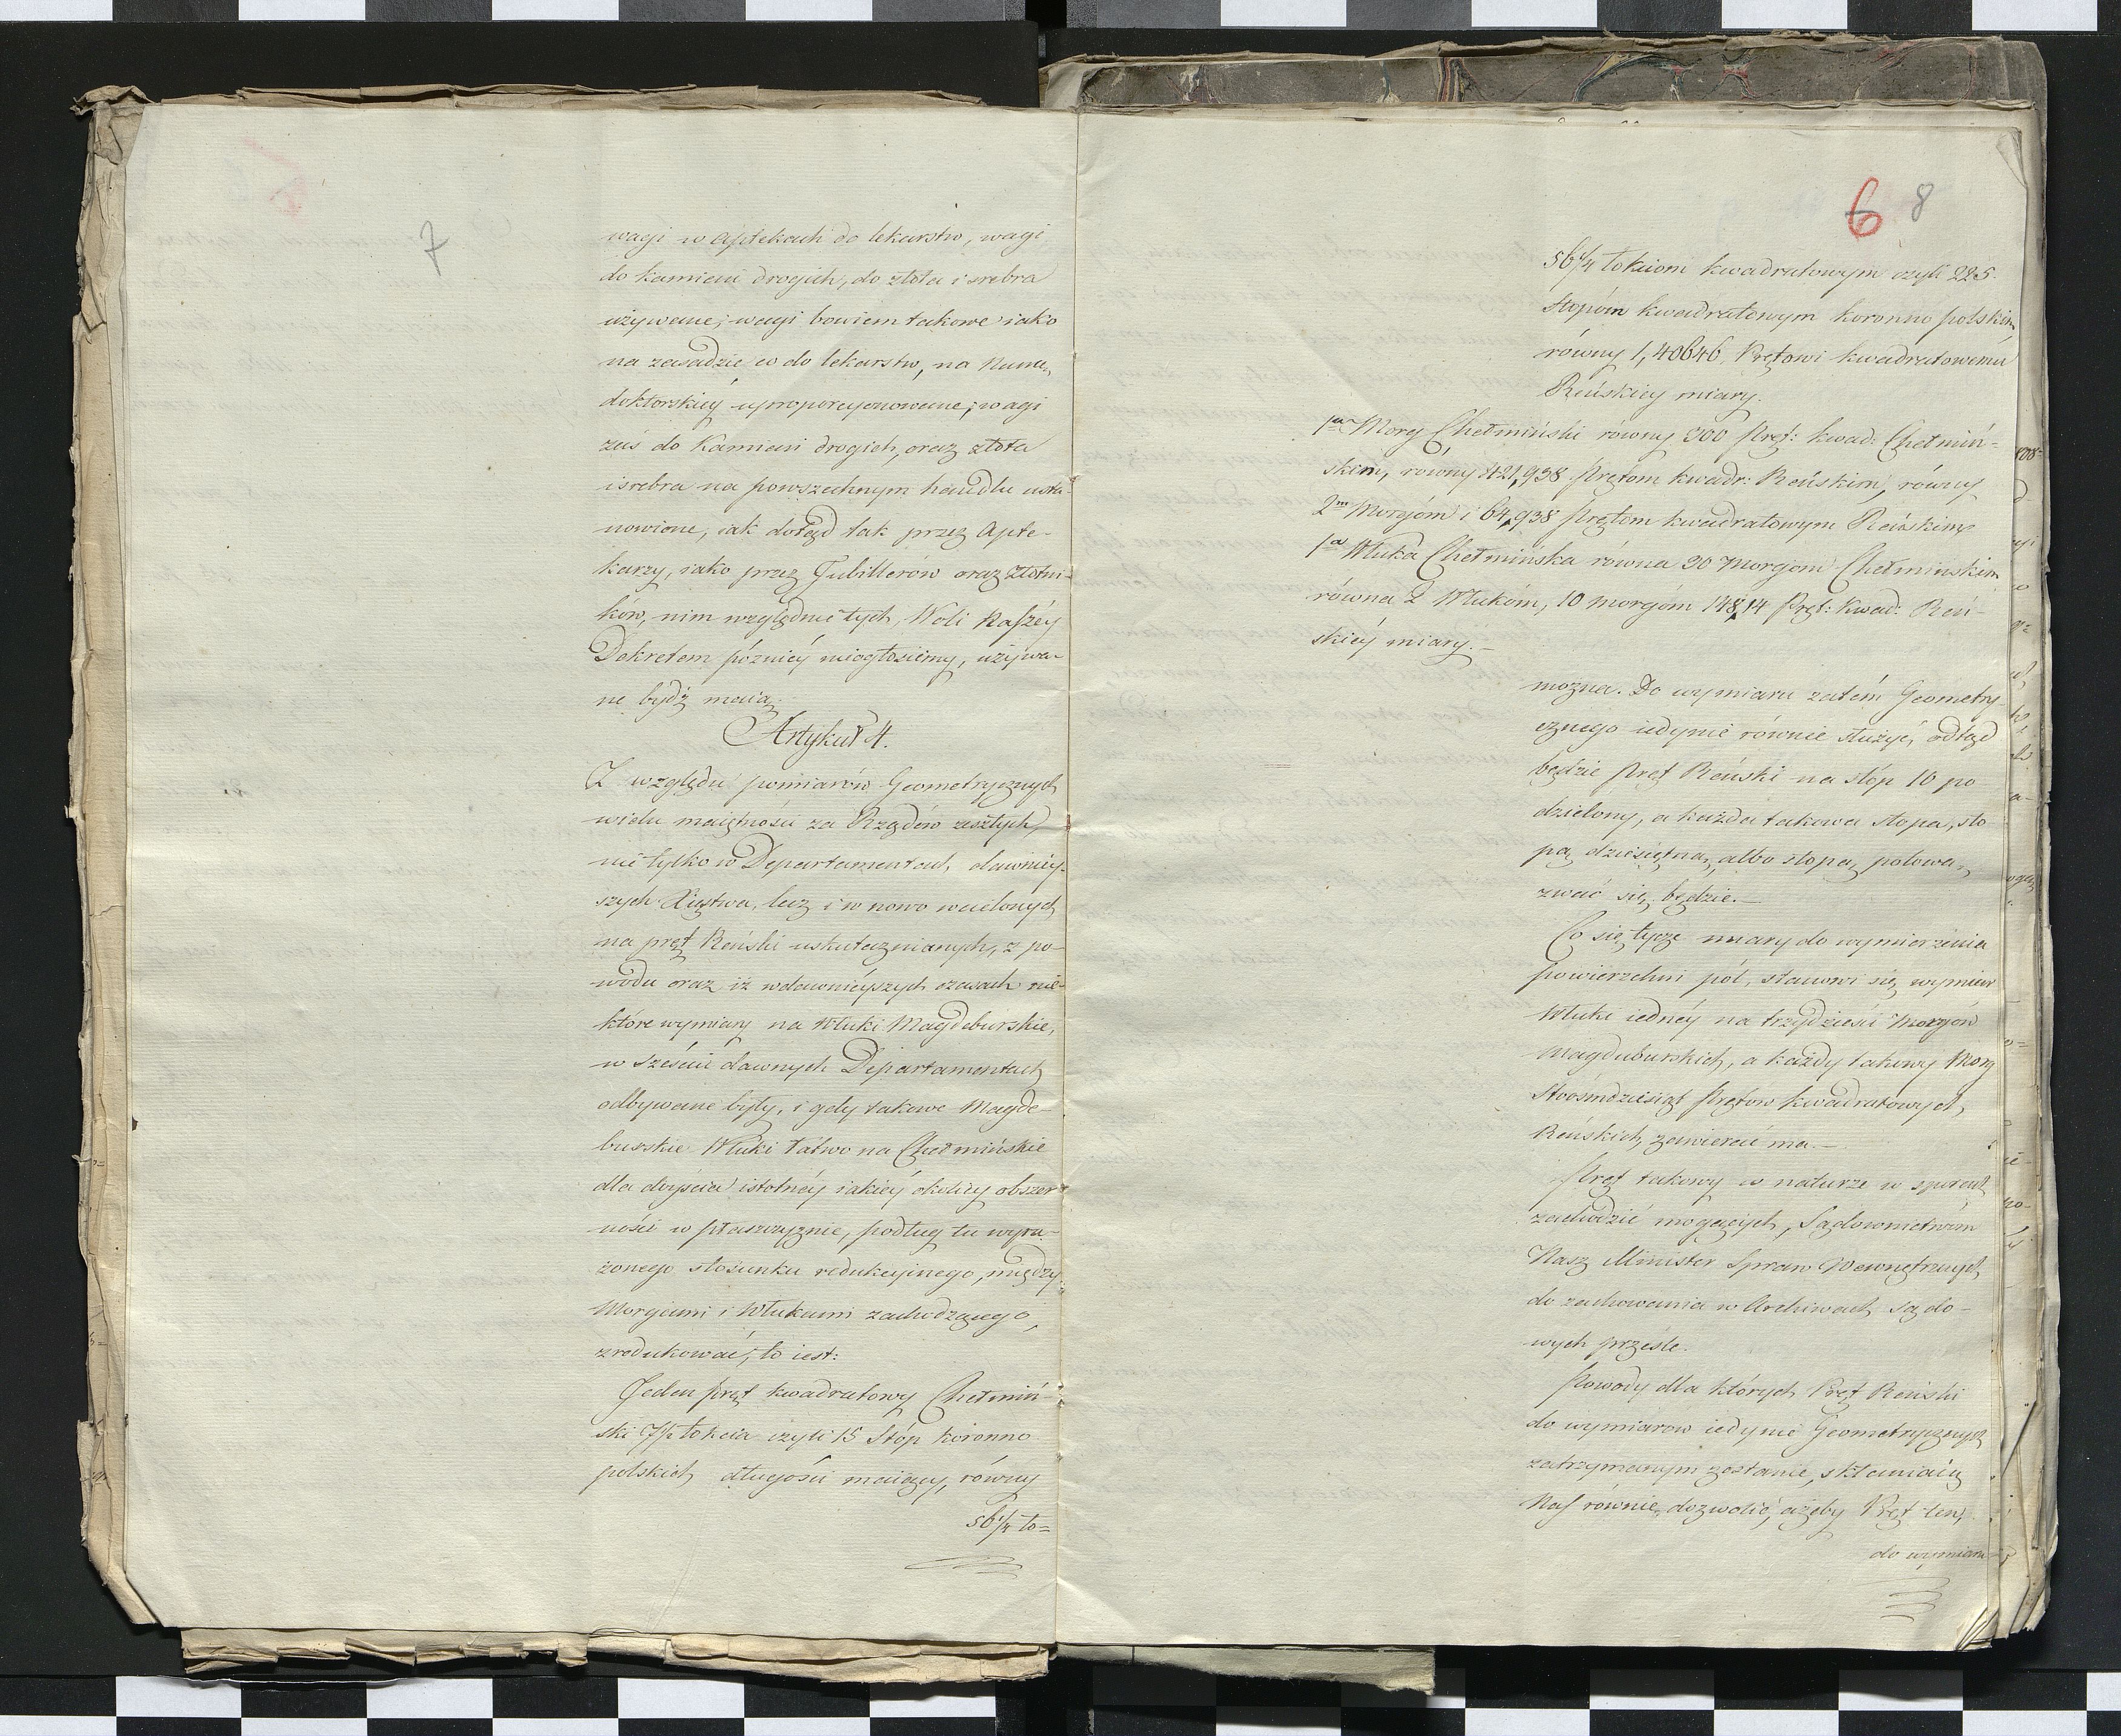 7
wagi w Aptekach do lekarstw, wagi
do kamieni drogich, do złota i srebra
używane; wagi bowiem takowe iako
na zasadzie co do lekarstw, na
doktorskiéy uproporcyonowane; wagi
zaś do Kamieni drogich, oraz złota
i srebra na powszechnym handlu usta-
nowione, iak dotąd tak przez Apte-
karzy, iako przez Jubillerów oraz Złotni-
ków, nim względnie tych, Woli Naszéy
Dekretem późniéy nieogłosiemy, używa-
ne bydź maią.
Artykuł 4.
Z względu pomiarów Geometrycznych
wielu maiętności za Rządów zeszłych,
nie tylko w Departamentach, dawniey-
szych Xięstwa, lecz i w nowo wcielonych
na pręt Reński uskutecznianych, z po-
wodu oraz iż w dawnieyszych czasach nie-
które wymiary na Włuki Magdeburskie,
w sześciu dawnych Departamentach
odbywane były, i gdy takowe Magde-
burskie Włuki łatwo na Chełmińskie
dla doyścia istotnéy iakiéy okolicy obszer
ności w płaszczyznie, podług tu wyra-
żonego stosunku redukcyinego, między
Morgami i Włukami zachodzącego,
zredukować, to iest:
Jeden pręt kwadratowy Chełmiń-
ski 7½ łokcia czyli 15 Stóp koronno
polskich długości maiący, równy
56¼ ło=
6 8
56¼ łokciom kwadratowym czyli 225.
stopóm kwadratowym koronno polskim,
równy 1,40646 Prętowi kwadratowemu
Reńskiey miary.
1en Morg Chełmiński równy 300 Pręt: kwad: Chełmiń-
skim, równy 421,938 Prętom kwadr: Reńskim, równy
2m Morgóm i 64,938 Prętom kwadratowym Reńskim,
1a Włuka Chełmińska równa 30 Morgom Chełminskim
równa 2 Włukóm, 10 morgom 178,14 Pręt: Kwad: Reń-
skiéy miary.–
można. Do wymiaru zatém Geometry
cznego iedynie równie służyć, odtąd
będzie Pręt Reński na stóp 10 po
dzielony, a każda takowa stopa, sto
pą dziesiętną, albo stopą polową
zwać się będzie.–
Co się tycze miary do wymierzenia
powierzchni pól, stanowi się wymiar
Włuki iednéy na trzydzieści Morgów
Magdeburskich, a każdy takowy Morg
Stoośmdziesiąt Prętów kwadratowych,
Reńskich, zawierać ma.–
Pręt takowy w naturze w sporach
zachodzić mogących, Sądownictwóm
Nasz Minister Spraw Wewnętrznych
do zachowania w Archiwach sądo-
wych prześle.
Powody dla których Pręt Reński
do wymiarow iedynie Geometrycznych
zatrzymanym zostanie, skłaniaią
Nas równie, dozwolić, ażeby Pręt ten,
do wymiaru